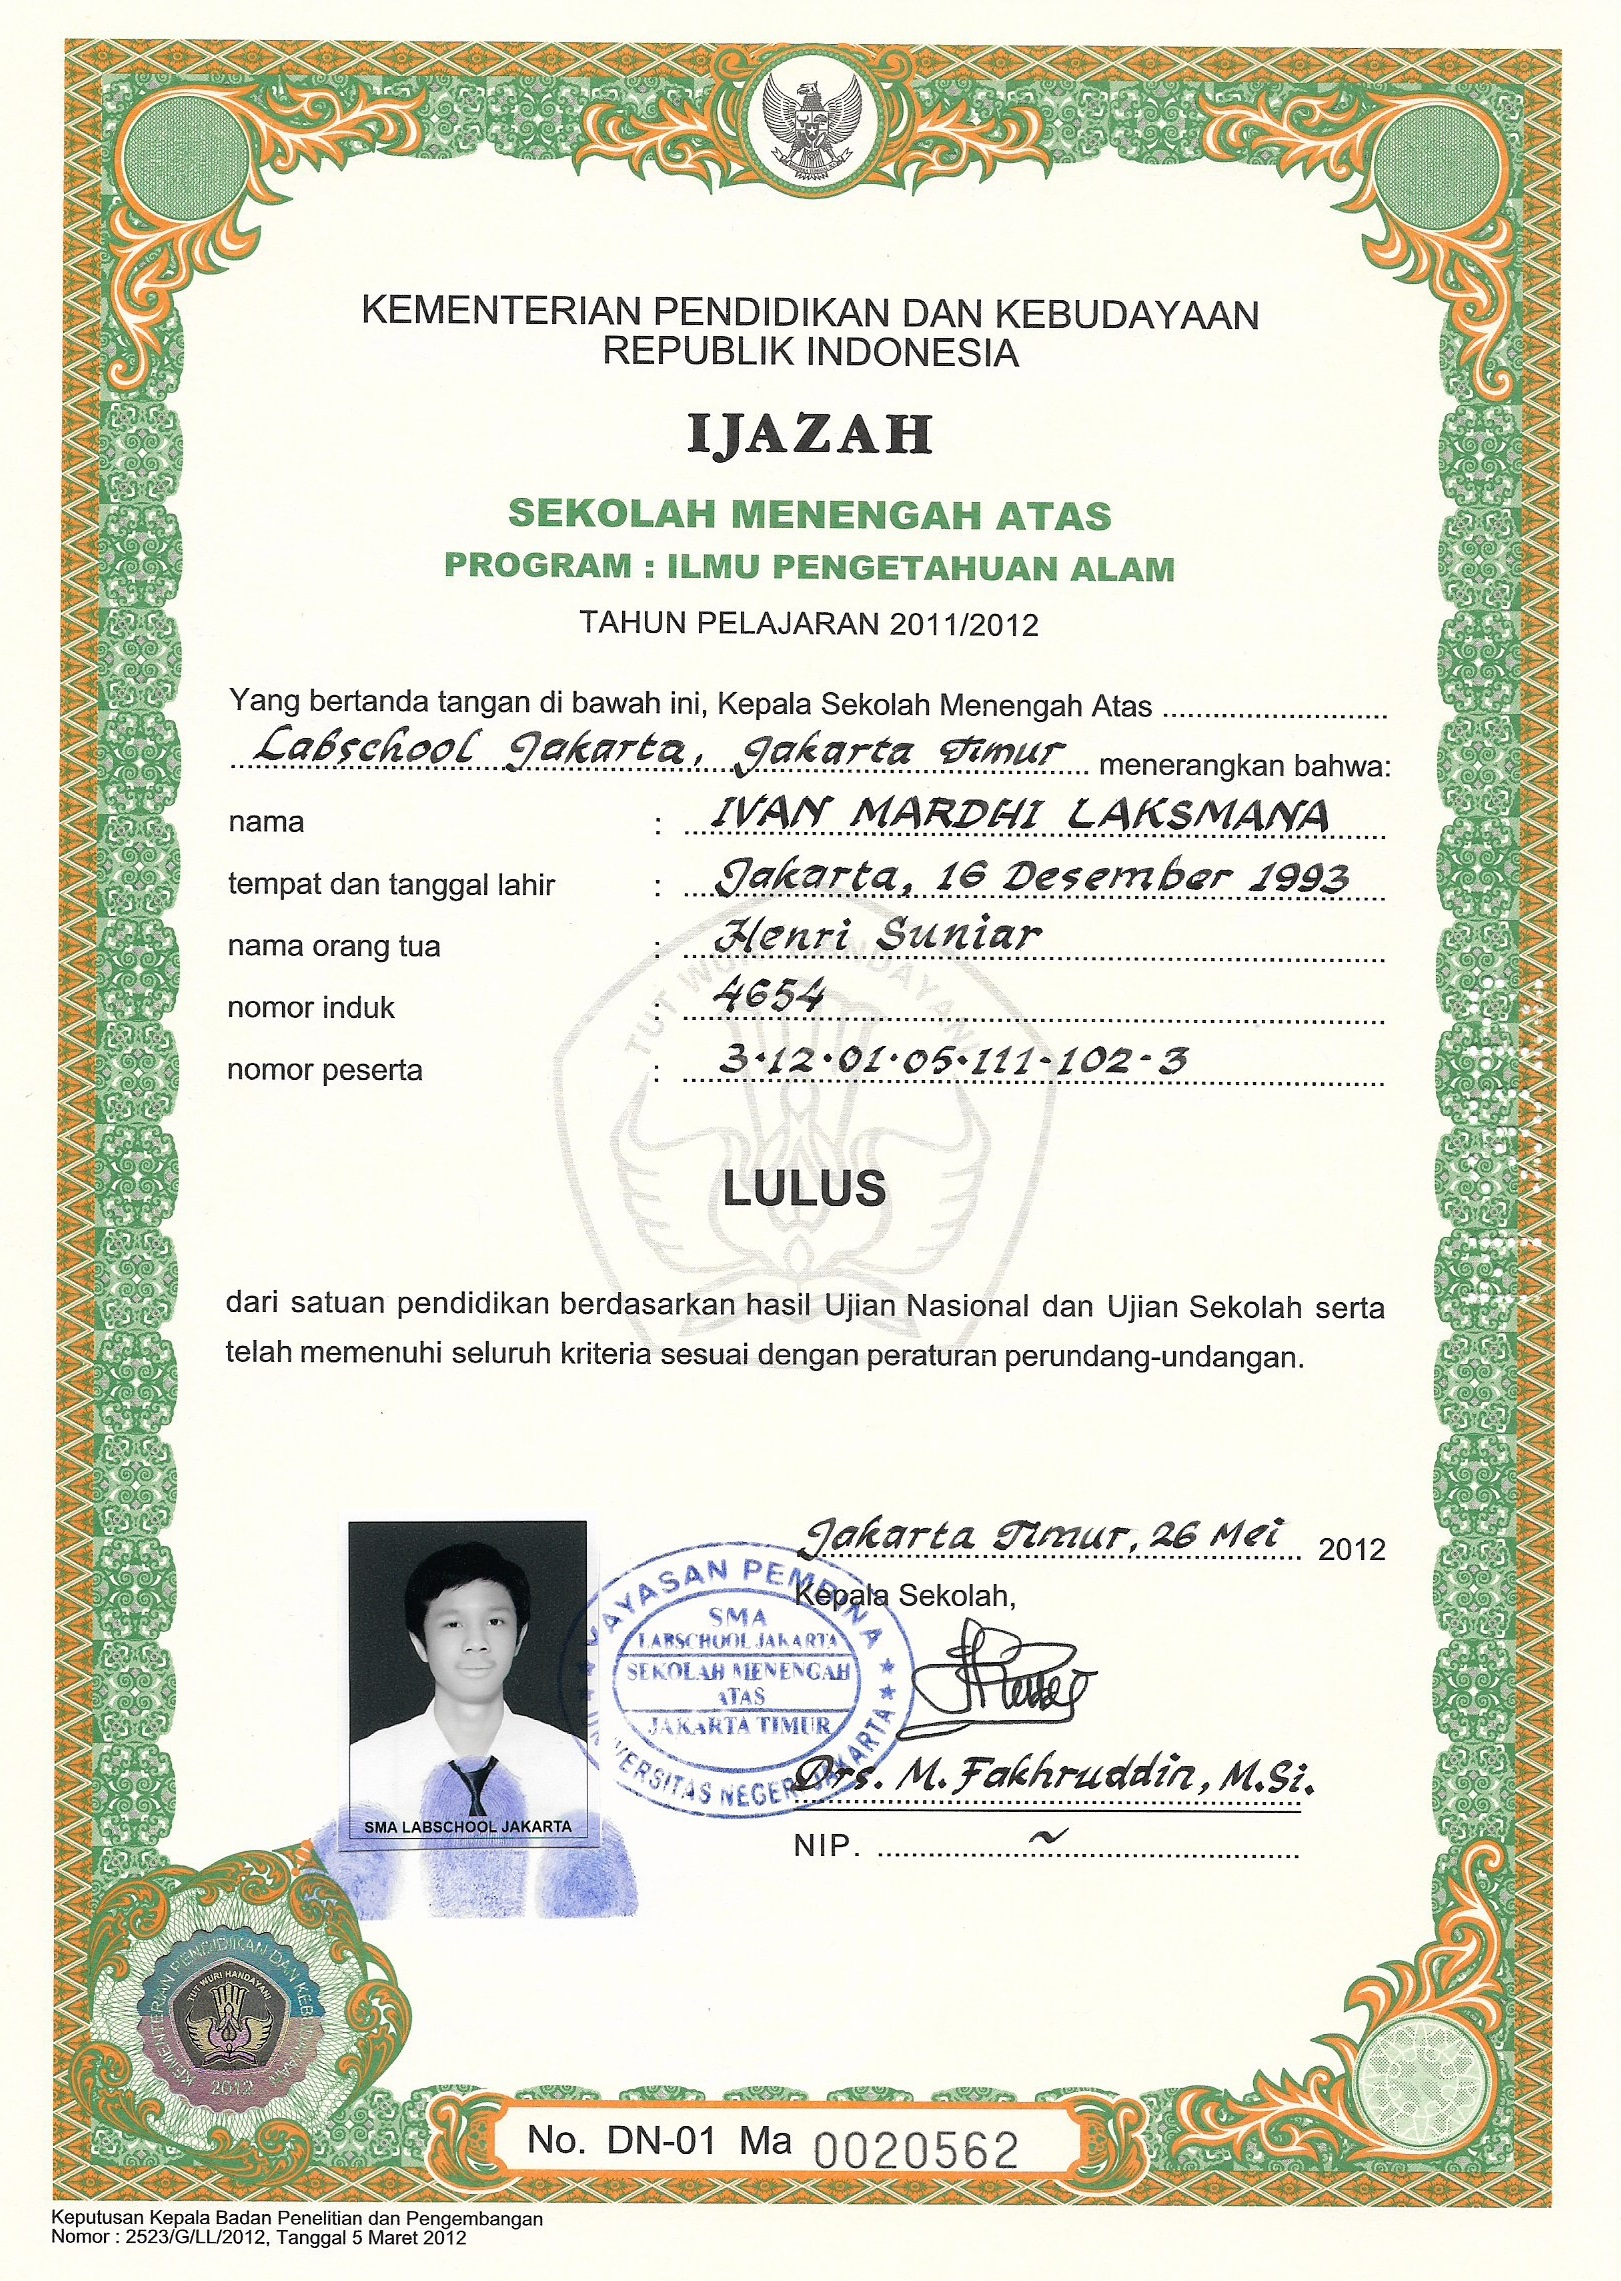 KEMENTERIAN PENDIDIKAN DAN KEBUDAYAAN
REPUBLIK INDONESIA
IJAZAH
SEKOLAH MENENGAH ATAS
PROGRAM : ILMU PENGETAHUAN ALAM
TAHUN PELAJARAN 2011/2012
Yang bertanda tangan di bawah ini, Kepala Sekolah Menengah Atas
Labschool Jakarta, Jakarta Timur menerangkan bahwa:
nama : IVAN MARDHI LAKSMANA
tempat dan tanggal lahir : Jakarta, 16 Desember 1993
nama orang tua : Henri Suniar
nomor induk : 4654
nomor peserta : 3-12-01-05-111-102-3
TUT WURI HANDAYANI
LULUS
dari satuan pendidikan berdasarkan hasil Ujian Nasional dan Ujian Sekolah serta
telah memenuhi seluruh kriteria sesuai dengan peraturan perundang-undangan.
Jakarta Timur, 26 Mei 2012
Kepala Sekolah,
YAYASAN PEMBINA
SMA
LABSCHOOL JAKARTA
SEKOLAH MENENGAH
ATAS
JAKARTA TIMUR
UNIVERSITAS NEGERI JAKARTA
Drs. M. Fakhruddin, M.Si.
NIP. ~
SMA LABSCHOOL JAKARTA
KEMENTERIAN PENDIDIKAN DAN KEBUDAYAAN
TUT WURI HANDAYANI
2012
No. DN-01 Ma 0020562
Keputusan Kepala Badan Penelitian dan Pengembangan
Nomor : 2523/G/LL/2012, Tanggal 5 Maret 2012